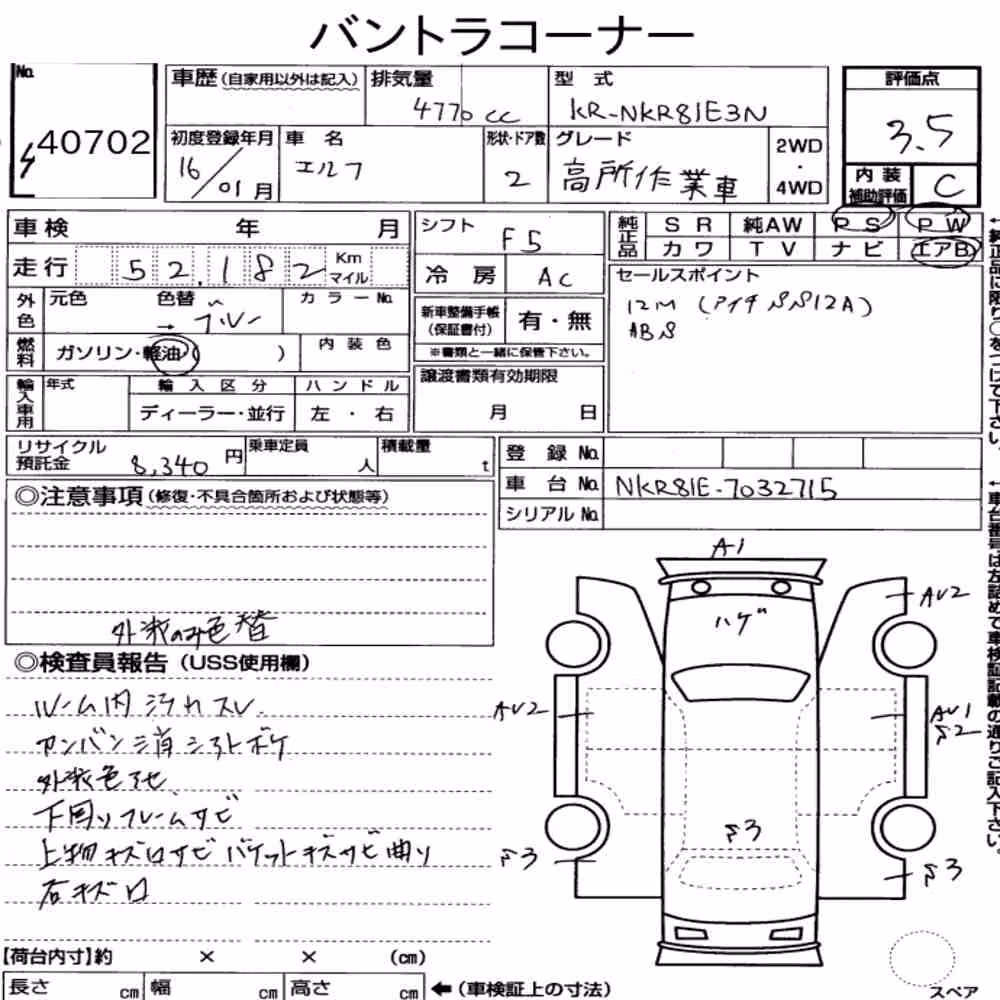 バントラコーナー
No. 40702
車歴(自家用以外は記入)
排気量 4770cc
型式 KR-NKR81E3N
評価点 3.5
初度登録年月 16/01月
車名 エルフ
形状・ドア数 2
グレード 高所作業車
2WD・4WD
内装補助評価 C
車検 年 月
シフト F5
純正品 SR 純AW PS PW
カワ TV ナビ エアB
走行 52,182 Km マイル
冷房 AC
セールスポイント
12M (アイチSS12A)
ABS
外色 元色 色替 → ブルー カラーNo.
新車整備手帳(保証書付) 有・無
※書類と一緒に保管下さい。
燃料 ガソリン・軽油・( )
内装色
輸入車用 年式 輸入区分 ハンドル
ディーラー・並行 左・右
譲渡書類有効期限
月 日
リサイクル預託金 8,340円
乗車定員 人
積載量 t
登録No.
車台No. NKR81E-7032715
シリアルNo.
◎注意事項(修復・不具合箇所および状態等)
外装のみ色替
◎検査員報告(USS使用欄)
ルーム内汚れスレ
カンバン消シアトボケ
外装色アセ
下回りフレームサビ
上物キズ凹サビ バケットキズサビ曲リ
右キズ凹
A1
ハゲ
AU2
AU2
AU1
S2
S3
S3
S3
【荷台内寸】約 × × (cm)
長さ cm 幅 cm 高さ cm ←(車検証上の寸法)
スペア
←純正品に限り○をつけて下さい。
←車台番号は左詰めで車検証記載の通りご記入下さい。